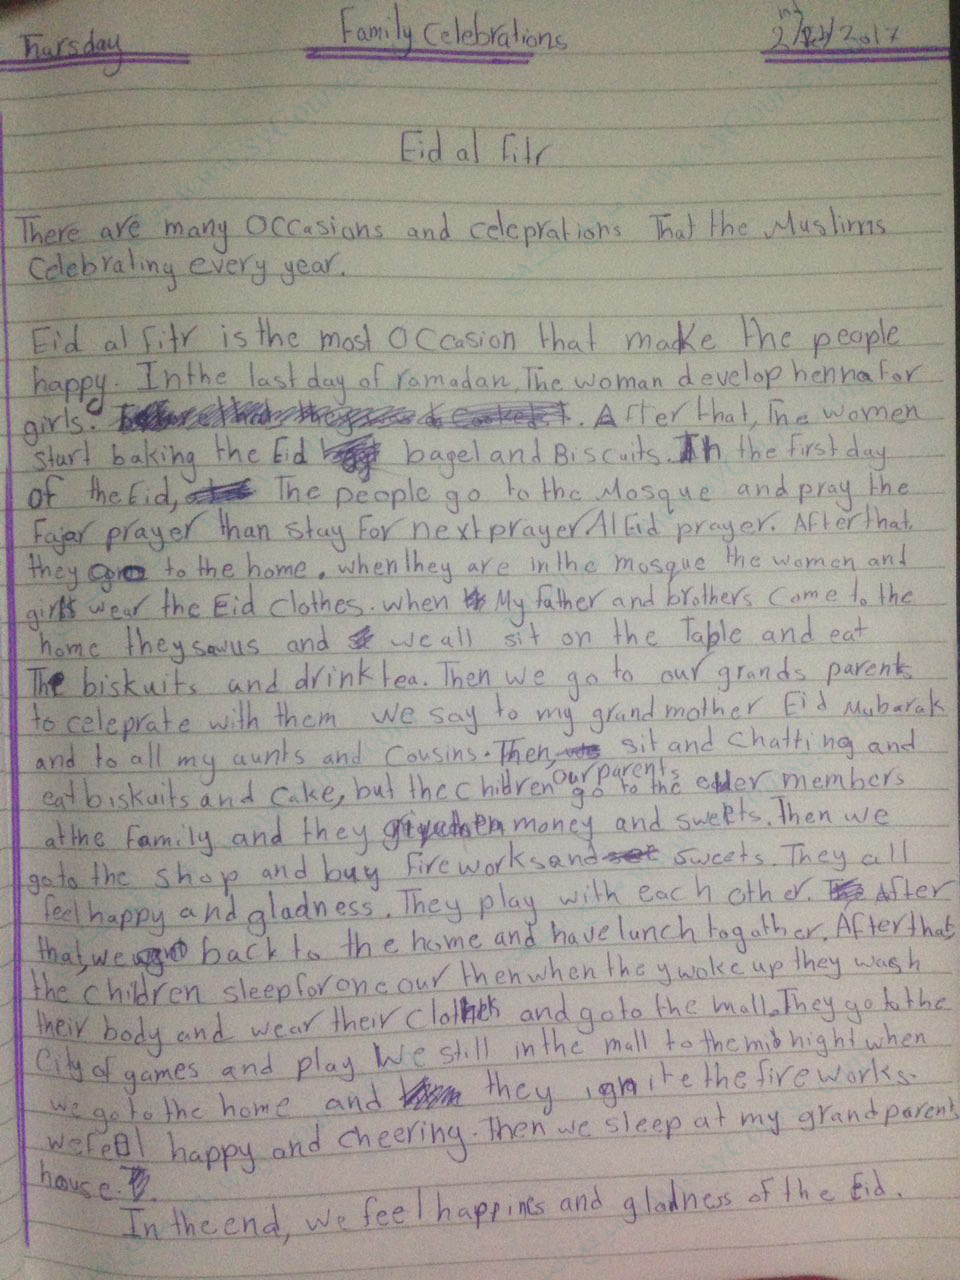 Thursday
Family Celebrations
2/Feb/2017
Eid al fitr
There are many Occasions and celeprations That the Muslims
Celebrating every year.
Eid al fitr is the most Occasion that make the people
happy. In the last day of ramadan, The woman develop henna for
girls. After that, The women
start baking the Eid bagel and Biscuits. In the first day
of the Eid, The people go to the Mosque and pray the
Fajar prayer than stay for next prayer Al Eid prayer. After that,
they go to the home. when they are in the mosque the women and
girls wear the Eid clothes. when My father and brothers come to the
home they saw us and we all sit on the Table and eat
The biskuits and drink tea. Then we go to our grands parents
to celeprate with them we say to my grand mother Eid Mubarak
and to all my aunts and cousins. Then, sit and chatting and
eat biskuits and cake, but the children go to the our parents elder members
at the family and they give them money and sweets. Then we
go to the shop and buy fireworks and sweets. They all
feel happy and gladness. They play with each other. After
that, we go back to the home and have lunch togather. After that,
the children sleep for one our then when they woke up they wash
their body and wear their clothes and go to the mall. They go to the
City of games and play We still in the mall to the mid night when
we go to the home and they ignite the fire works.
we feel happy and cheering. Then we sleep at my grand parents
house.
In the end, we feel happines and gladness of the Eid.